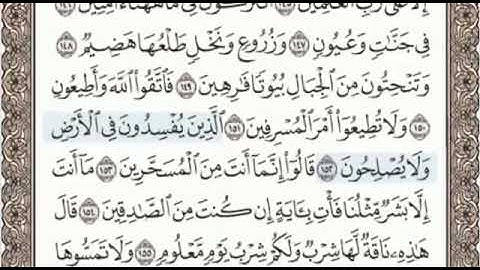 إِلَّا عَلَىٰ رَبِّ ٱلْعَٰلَمِينَ ١٤٥ أَتُتْرَكُونَ فِى مَا هَٰهُنَآ ءَامِنِينَ ١٤٦
فِى جَنَّٰتٍ وَعُيُونٍ ١٤٧ وَزُرُوعٍ وَنَخْلٍ طَلْعُهَا هَضِيمٌ ١٤٨
وَتَنْحِتُونَ مِنَ ٱلْجِبَالِ بُيُوتًا فَٰرِهِينَ ١٤٩ فَٱتَّقُوا۟ ٱللَّهَ وَأَطِيعُونِ
١٥٠ وَلَا تُطِيعُوٓا۟ أَمْرَ ٱلْمُسْرِفِينَ ١٥١ ٱلَّذِينَ يُفْسِدُونَ فِى ٱلْأَرْضِ
وَلَا يُصْلِحُونَ ١٥٢ قَالُوٓا۟ إِنَّمَآ أَنتَ مِنَ ٱلْمُسَحَّرِينَ ١٥٣ مَآ أَنتَ
إِلَّا بَشَرٌ مِّثْلُنَا فَأْتِ بِـَٔايَةٍ إِن كُنتَ مِنَ ٱلصَّٰدِقِينَ ١٥٤ قَالَ
هَٰذِهِۦ نَاقَةٌ لَّهَا شِرْبٌ وَلَكُمْ شِرْبُ يَوْمٍ مَّعْلُومٍ ١٥٥ وَلَا تَمَسُّوهَا